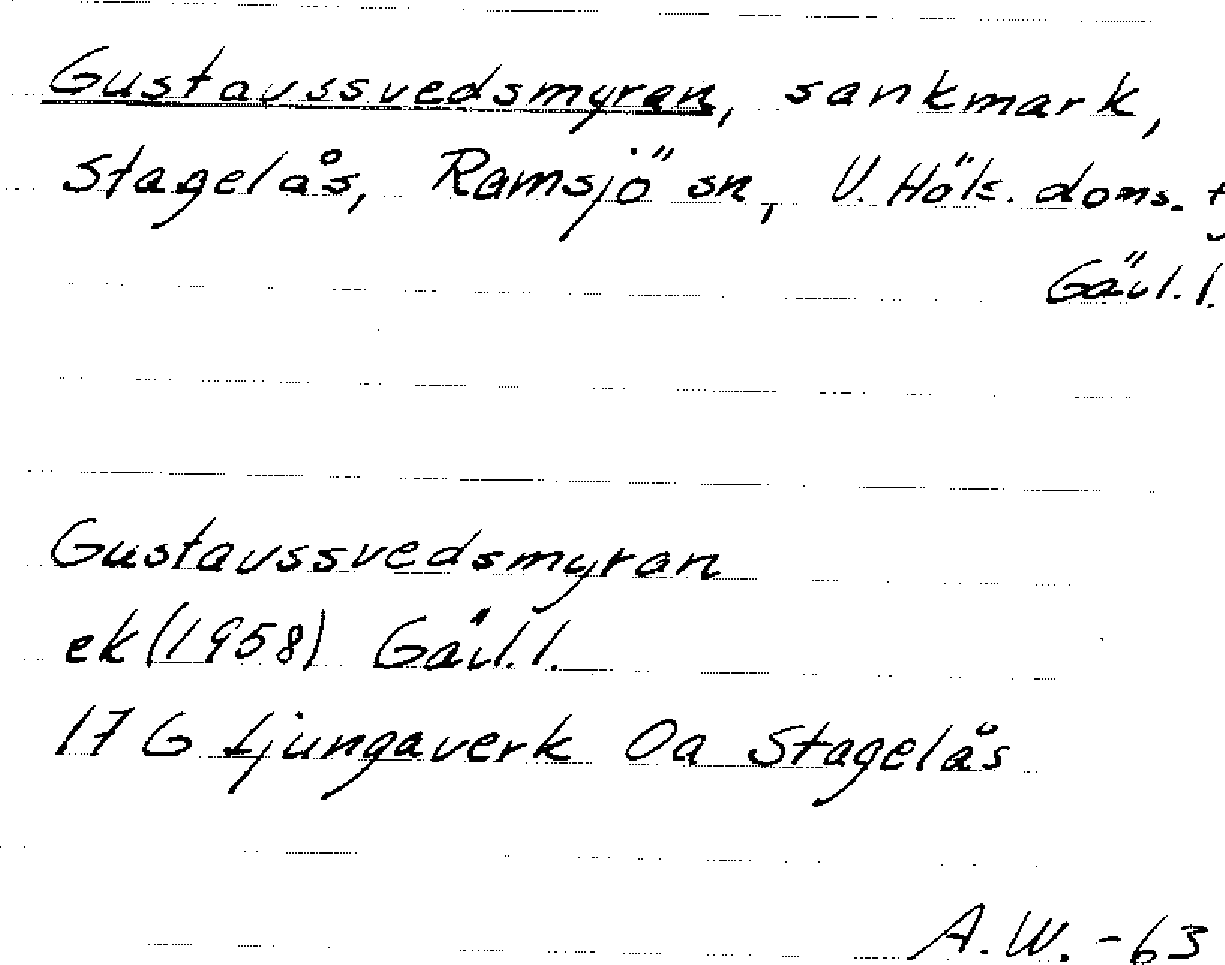 Gustavssvedsmyran, sankmark,
Stagelås, Ramsjö sn, V. Häls. doms. t
Gävl. l.
Gustavssvedsmyran
ek (1958) Gävl. l.
17 G Ljungaverk 0a Stagelås
A.W. -63